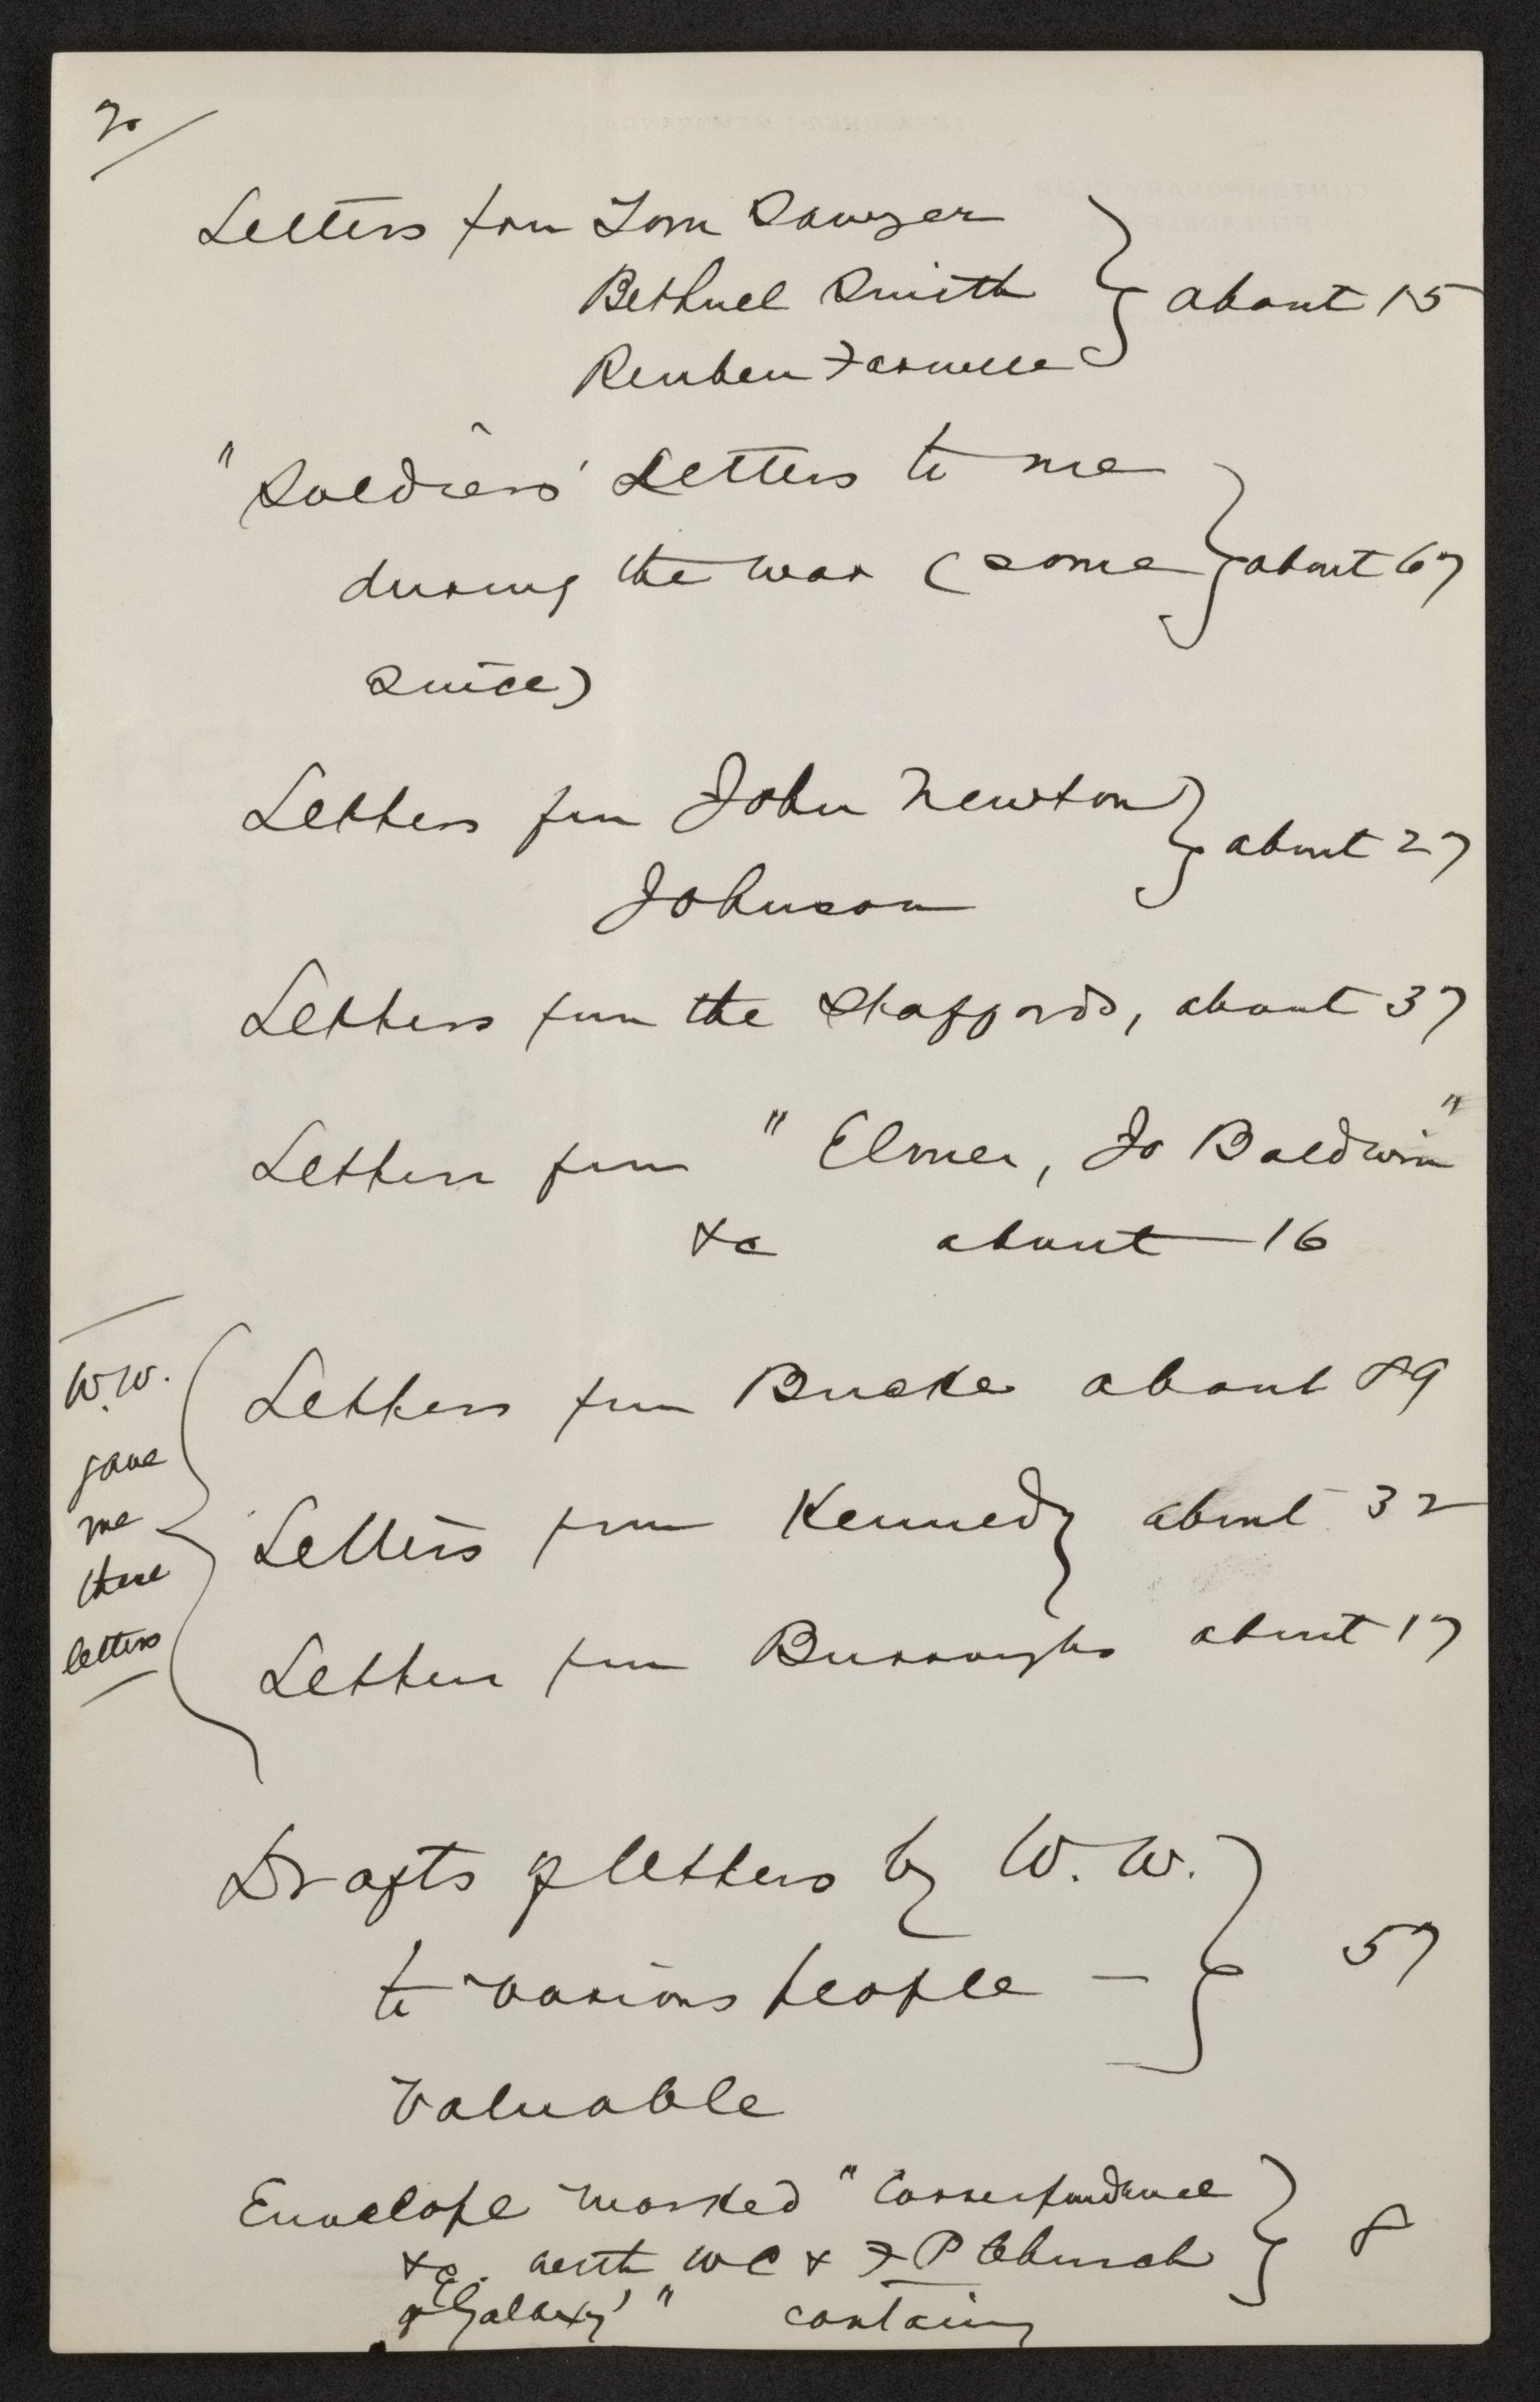 2.
Letters from Tom Sawyer
Bethuel Smith
Reuben Farwell
about 15
"Soldiers' Letters to me
during the war (some
about 67
since)
Letters from John Newton
Johnson
about 27
Letters from the Staffords, about 37
Letters from "Elmer, Jo Baldwin"
&c about 16
W.W.
gave
me
these
letters
Letters from Bucke about 89
Letters from Kennedy about 32
Letters from Burroughs about 17
Drafts of letters by W. W.
to various people —
57
Valuable
Envelope marked "Correspondence
&c. with W C & F P Church
8
'Galaxy'" containing